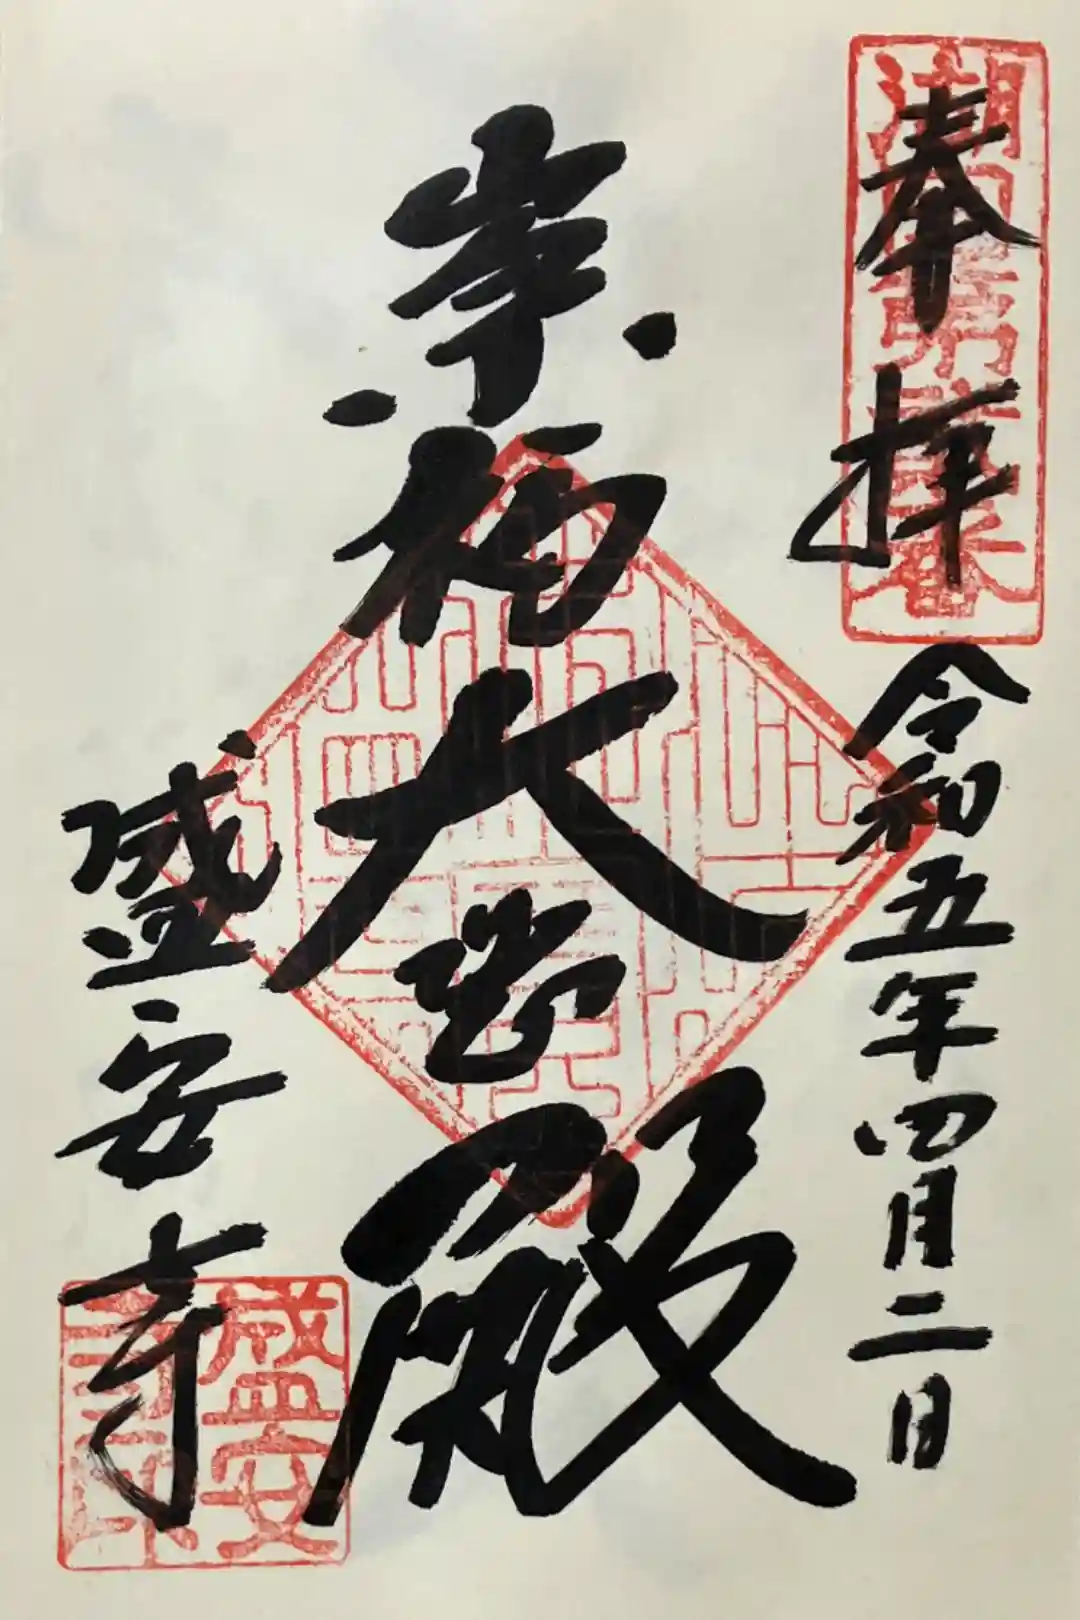 奉拝
令和五年四月二日
崇福大悲殿
盛安寺
盛安
寺印